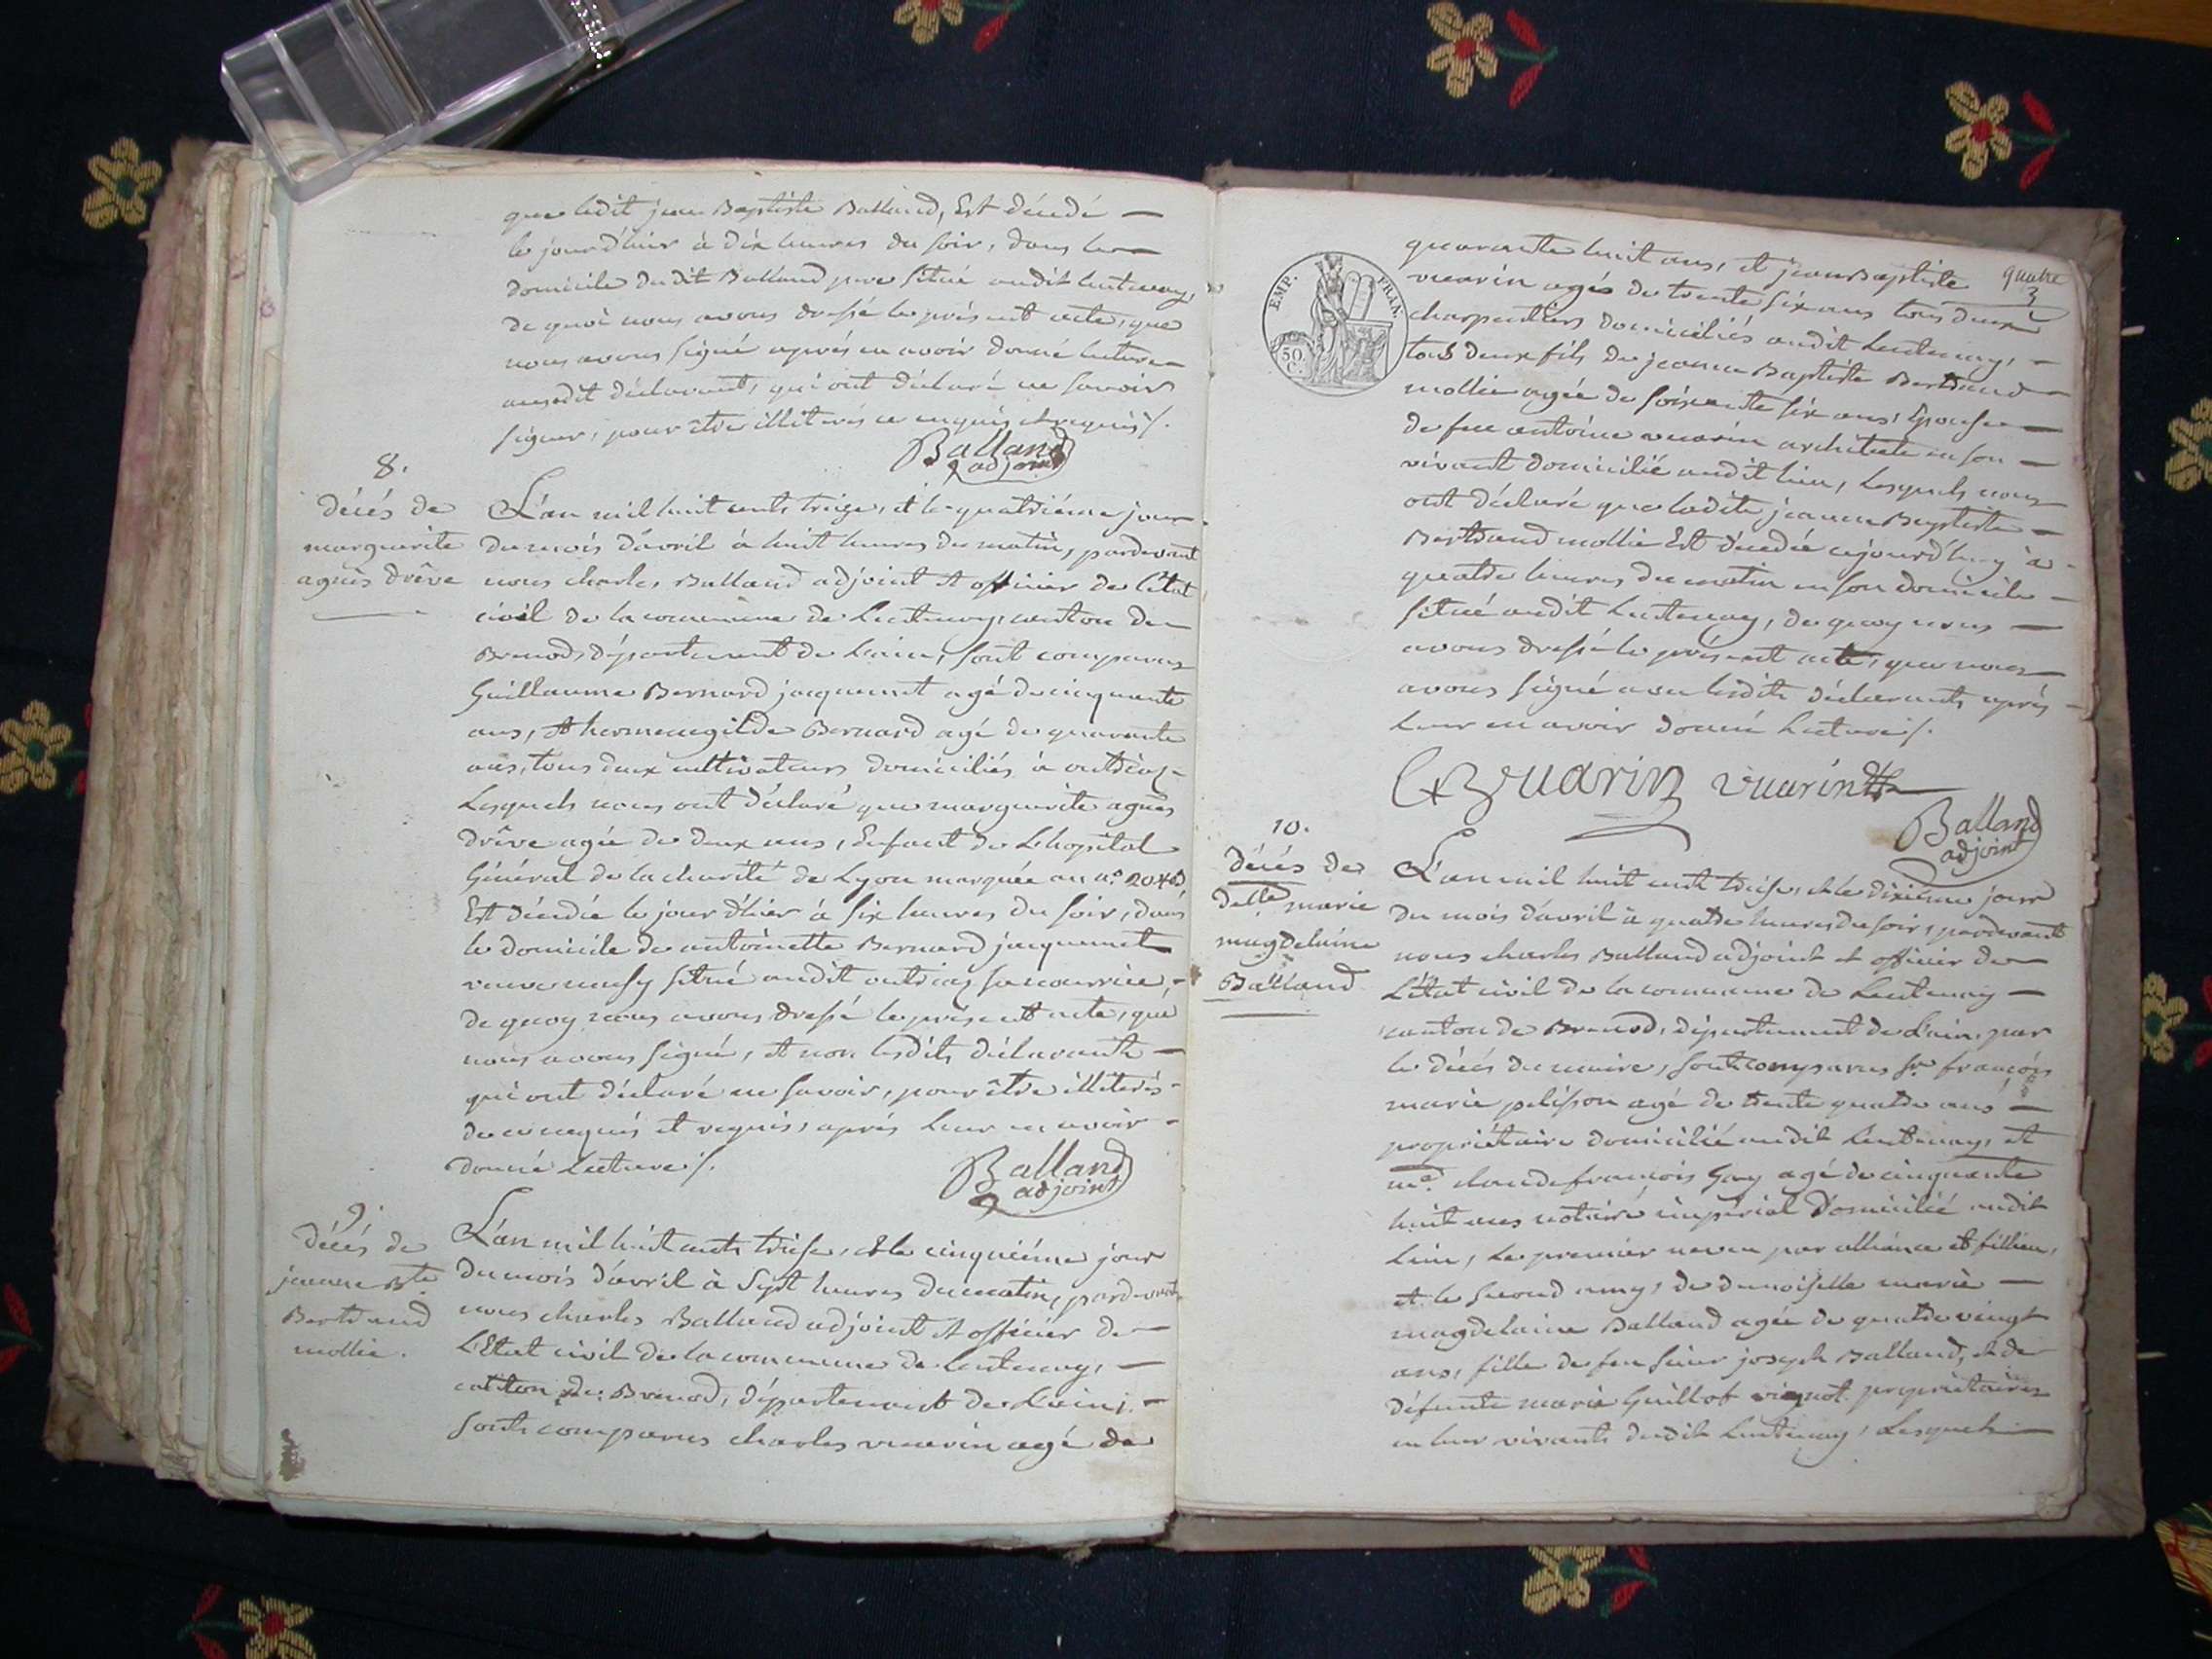 que ledit jean Baptiste Balland, Est décédé —
le jour d'hier à dix heures du soir, dans le —
domicile dudit Balland pere situé audit Lantenay,
de quoi nous avons dressé le présent acte, que
nous avons signé après en avoir donné lecture —
auxdit déclarants, qui ont déclaré ne savoir
signer, pour être illiterés ce enquis et requis /.
Balland
adjoint
8.
décés de
marguerite
agnès drêve
L'an mil huit cents treize, et le quatrième jour
du mois d'avril à huit heures du matin, pardevant
nous charles Balland adjoint et officier de l'état
civil de la commune de Lantenay, canton de —
Brenod, département de l'ain, sont comparus
Guillaume Bernard jacquemet agé de cinquante
ans, et hermenegilde Bernard agé de quarante
ans, tous deux cultivateurs domiciliés à outriaz —
Lesquels nous ont déclaré que marguerite agnès
drêve agée de deux ans, Enfant de L'hopital
Général de la charité de Lyon marquée au n.o
Est décédée le jour d'hier à six heures du soir, dans
le domicile de antoinette Bernard jacquemet
veuve situé audit outriaz sa nourrice, —
de quoy nous avons dressé le présent acte, que
nous avons signé, et non lesdits déclarants —
qui ont déclaré ne savoir, pour être illiterés —
de ce enquis et requis, après leur en avoir —
donné Lecture /.
Balland
adjoint
9.
décés de
jeanne Bte
Bertrand
mollie.
L'an mil huit cents treise, et le cinquième jour
du mois d'avril à Sept heures du matin, pardevant
nous charles Balland adjoint et officier de —
L'Etat civil de la commune de Lantenay, —
canton de Brenod, département de L'ain, —
sont comparus charles vuarin agé de
quatre
EMP. FRAN.
50.
C.
quarante huit ans, et jean Baptiste
vuarin agés de trente six ans tous deux
charpentiers domiciliés audit Lantenay, —
tous deux fils de jeanne Baptiste Bertrand —
mollie agée de soixante six ans, Epouse —
de feu antoine vuarin architecte en son —
vivant domicilié audit lieu, Lesquels nous
ont déclaré que ladite jeanne Baptiste —
Bertrand mollie Est décédée cejourd'huy à —
quatre heures du matin en son domicile —
situé audit Lantenay, de quoy nous —
avons dressé le présent acte, que nous
avons signé avec lesdits déclarants après —
leur en avoir donné Lecture /.
vuarin vuarin
Balland
adjoint
10.
décés de
delle marie
magdelaine
Balland
L'an mil huit cent treise, et le dixième jour
du mois d'avril à quatre heures du soir, pardevant
nous charles Balland adjoint et officier de —
L'état civil de la commune de Lantenay —
canton de Brenod, département de L'ain, par
le décés du maire, sont comparus sr. françois
marie pelisson agé de trente quatre ans —
propriétaire domicilié audit Lantenay, et
me. claude françois Gay agé de cinquante
huit ans notaire impérial domicilié audit
Lieu, Le premier neveu par alliance et fillieu,
et le second amy, de demoiselle marie —
magdelaine Balland agée de quatre vingt
ans, fille de feu sieur joseph Balland, et de
défunte marie Guillot propriétaires
en leur vivants dudit Lantenay, Lesquels —